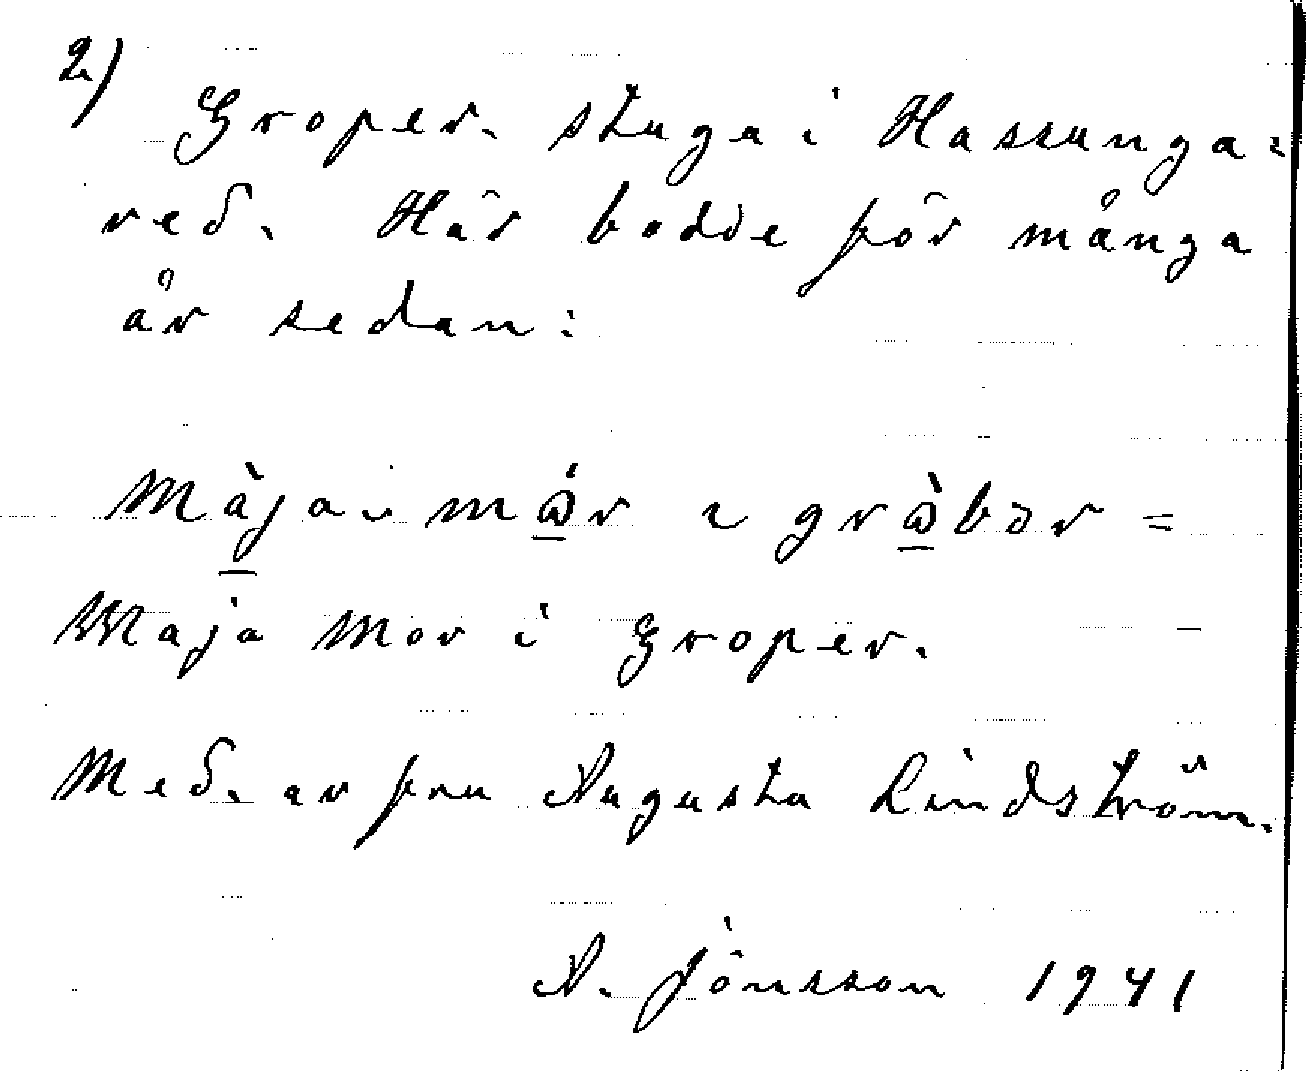 2)
Groper. stuga i Hassunga=
red. Här bodde för många
år sedan:
Màja. mώ̲r ı grὼ̲bər =
Maja Mor i Groper.
Med. av fru Augusta Lindström.
A. Jönsson 1941